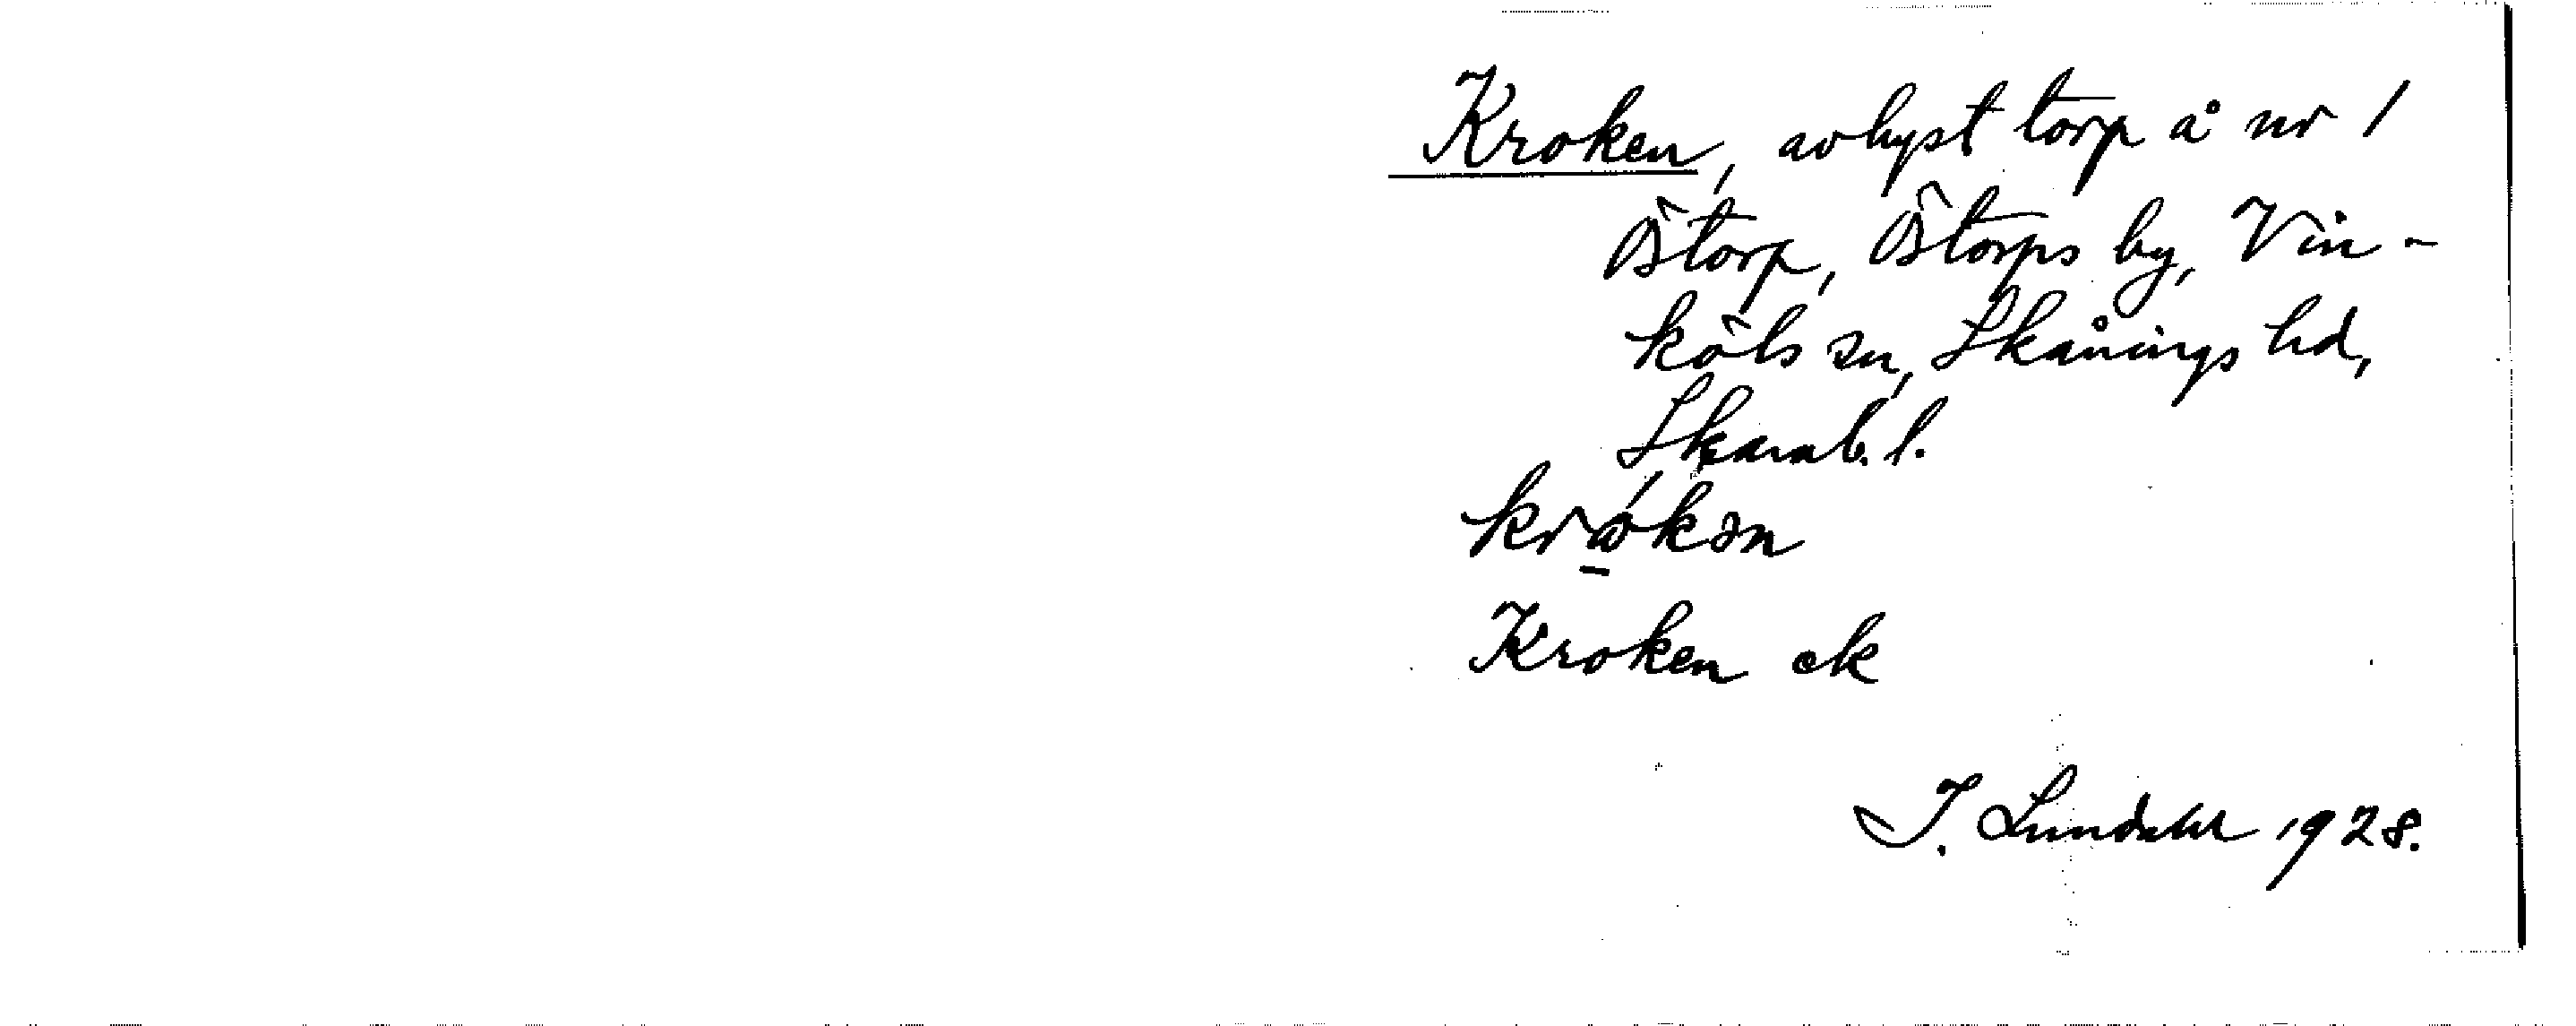 Kroken, avhyst torp å nr 1
Östorp, Östorps by, Vin-
köls sn, Skånings hd,
Skarab. l.
kró̱kən
Kroken ek
I. Lundahl 1928.